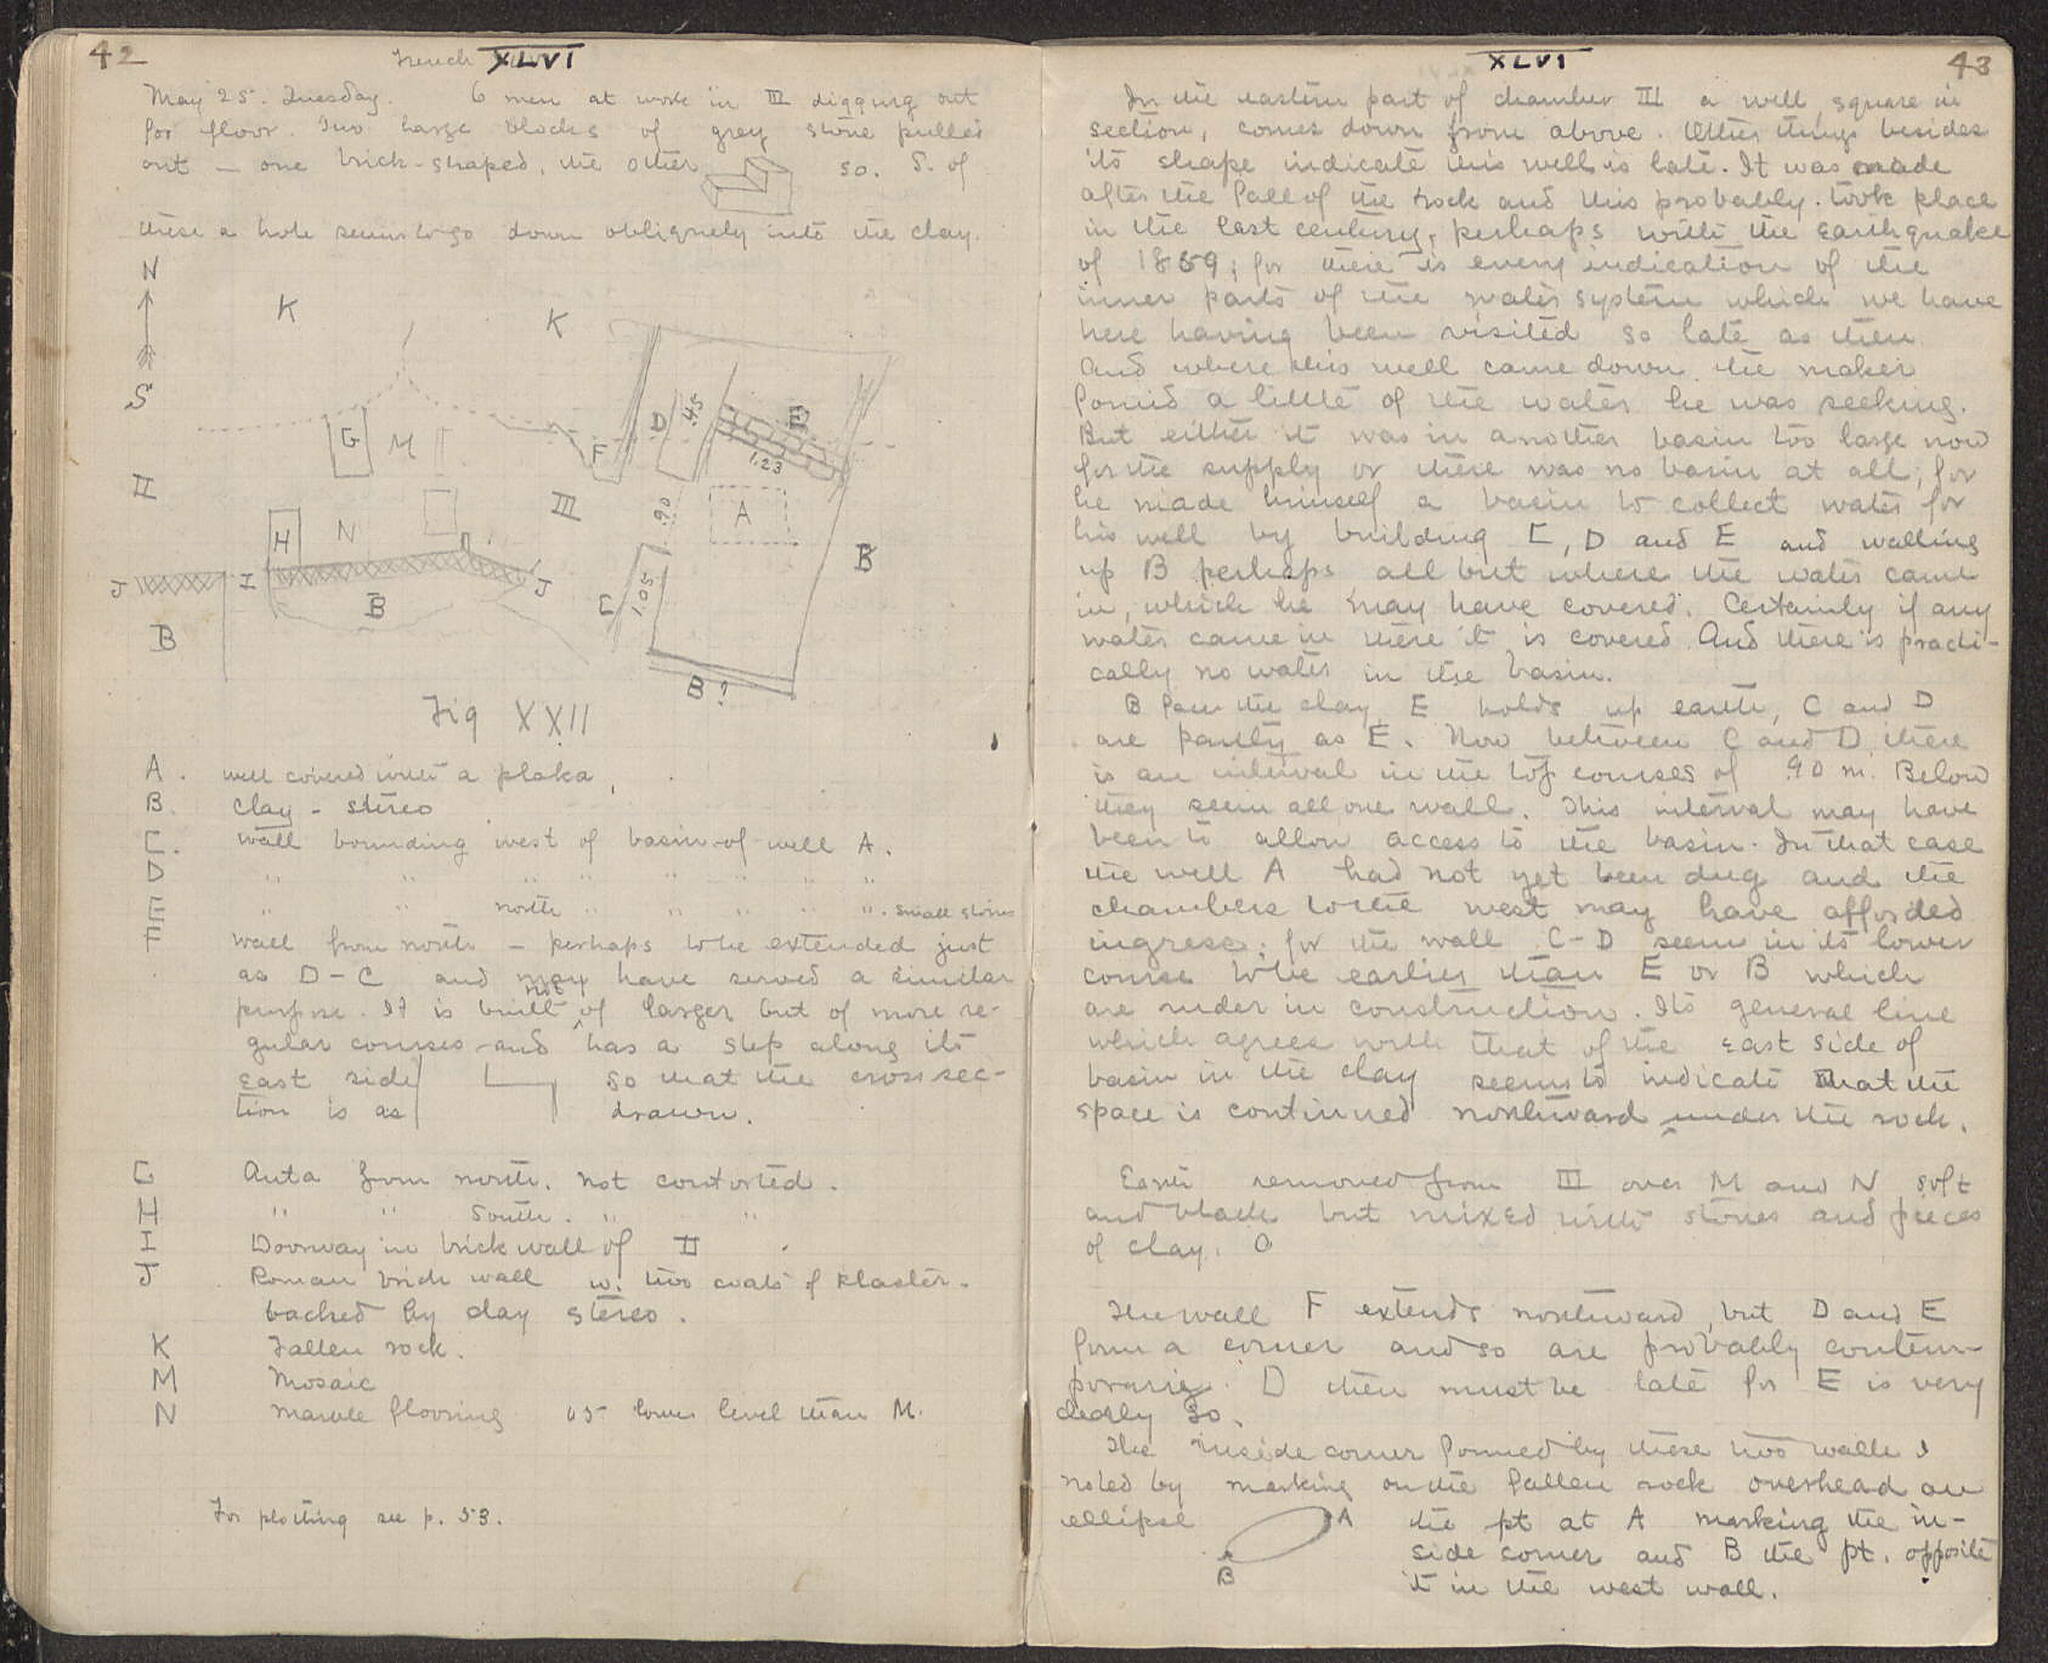 42
Trench XLVI
May 25. Tuesday. 6 men at work in III digging out
for floor. Two large blocks of grey stone pulled
out — one brick-shaped, the other so. S. of
these a hole seems to go down obliquely into the clay.
N
S
K
K
G
M
D
.45
E
F
1.23
II
III
.90
A
H
N
J
I
J
B
B
C
1.05
B
B?
Fig XXII
A. well covered with a plaka,
B. clay - stereo
C. wall bounding west of basin of well A.
D " " " " " " " "
E " " north " " " " ". small stones
F wall from north — perhaps to be extended just
as D-C and may have served a similar
purpose. It is built not of larger but of more re-
gular courses and has a step along its
east side so that the cross sec-
tion is as drawn.
G Anta from north. not contorted.
H " " South. " "
I Doorway in brick wall of II
J Roman brick wall w. two coats of plaster.
backed by clay stereo.
K Fallen rock.
M Mosaic
N marble flooring 05 lower level than M.
For plotting see p. 53.
XLVI
43
In the eastern part of chamber III a well, square in
section, comes down from above. Other things besides
its shape indicate this well is late. It was made
after the fall of the rock and this probably took place
in the last century, perhaps with the earthquake
of 1859; for there is every indication of the
inner parts of the water system which we have
here having been visited so late as then
And where this well came down the maker
found a little of the water he was seeking.
But either it was in another basin too large now
for the supply or there was no basin at all; for
he made himself a basin to collect water for
his well by building C, D and E and walling
up B perhaps all but where the water came
in, which he may have covered. Certainly if any
water came in there it is covered And there is practi-
cally no water in the basin.
B from the clay, E holds up earth, C and D
are partly as E. Now between C and D there
is an interval in the top courses of .90 m. Below
they seem all one wall. This interval may have
been to allow access to the basin. In that case
the well A had not yet been dug and the
chambers to the west may have afforded
ingress; for the wall C-D seem in its lower
course to be earlier than E or B which
are ruder in construction. Its general line
which agrees with that of the east side of
basin in the clay seems to indicate that the
space is continued northward under the rock.
Earth removed from III over M and N soft
and black but mixed with stones and pieces
of clay. O
The wall F extends northward, but D and E
form a corner and so are probably contem-
porary. D then must be late for E is very
clearly so.
The inside corner formed by these two walls I
noted by marking on the fallen rock overhead an
ellipse A the pt at A marking the in-
side corner and B the pt. opposite
B
it in the west wall.